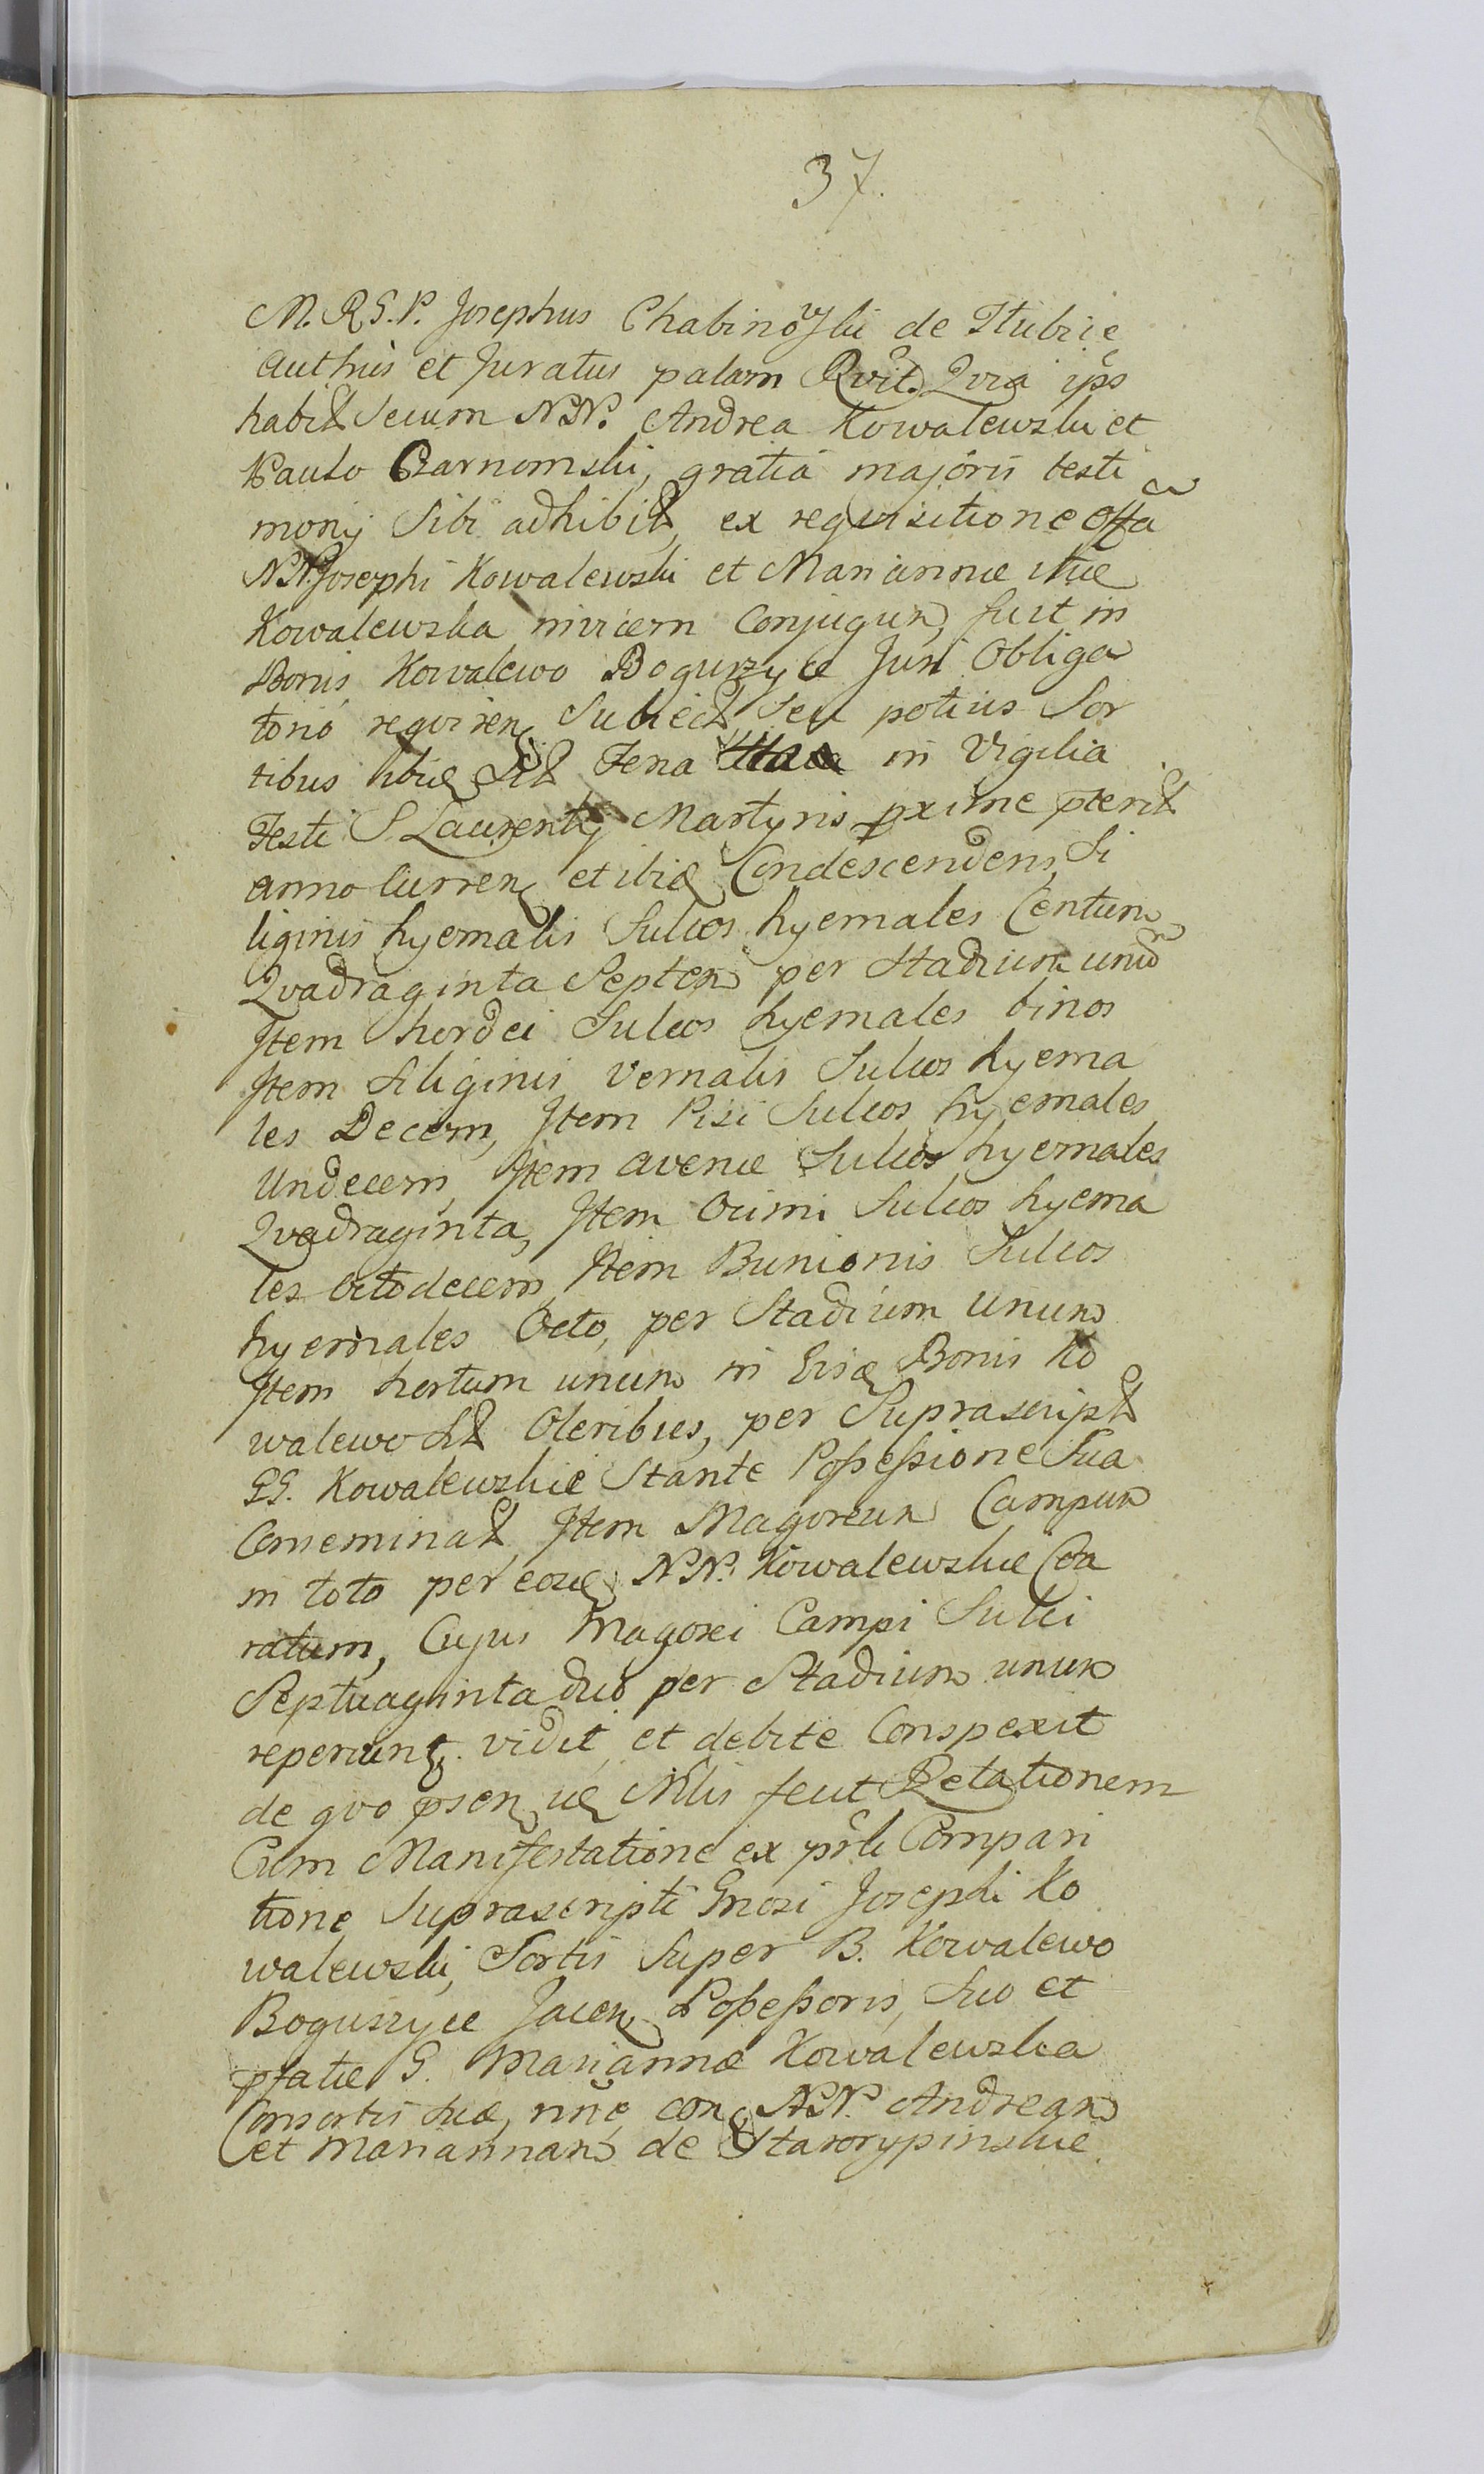 37.
M. R. G. P. Josephus Chabinowski de
authūs et Juratus palam Quia ip̃s
habit Secum NN. Andrea Kowalewski et
Paulo Czarnomski, gratia majoris testi
monij Sibi adhibit, ex requisitione offa
NN. Josephi Kowalewski et Mariannæ
Kowalewska invicem Conjugum, fuit in
Bonis Kowalewo Boguszyce Juri Obliga
torio Subiect Seu potius Sor
tibus Feria in Vigilia
Festi S. Laurentij Martyris pxime pterit
anno Curren et ibiq Condescendens, Si
liginis hyemalis Sulcos hyemales Centum
Qvadraginta Septem per Stadium unum
Item hordei Sulcos hyemales binos
Item Siliginis vernalis Sulcos hyema
les Decem, Item Pisi Sulcos hyemales
Undecem, Item avenæ Sulcos hyemales
Qvadraginta, Item Ocimi Sulcos hyema
les octodecem, Item Bunionis Sulcos
hyemales Octo, per Stadium unum
Item hortum unum in Bonis Ko
walewo Oleribus, per Suprascript
GG. Kowalewskie Stante Possessione Sua
Conseminat, Item Magoreum Campum
in toto per eosd NN. Kowalewskie Coa
ratum, Cujus Magorei Campi Sulci
Septuaginta duo per Stadium unum
reperiunt. vidit, et debite Conspexit
de qvo psen fecit Relationem
Cum Manifestatione ex psli Compari
tione Suprascripti Gnosi Josephi Ko
walewski, Sortis Super B. Kowalewo
Boguszyce Jacen Possessoris, Suo et
pfatæ G. Mariannæ Kowalewska
Consortis suæ, nñe, con NN. Andream
et Mariannam de Starorypinskie